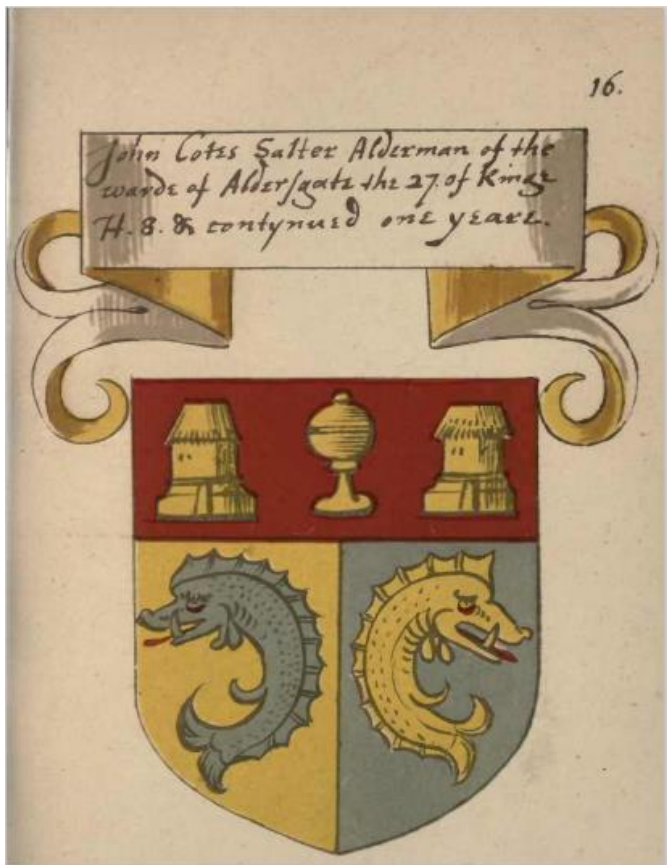 16.
John Cotes Salter Alderman of the
warde of Aldersgate the 27. of Kinge
H. 8. & contynued one yeare.